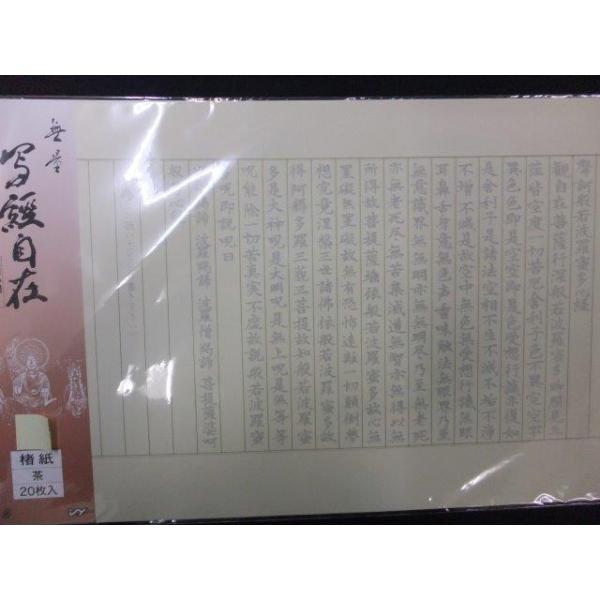 無量
写経自在
楮紙
茶
20枚入
訶般若波羅蜜多心経
觀自在菩薩行深般若波羅蜜多時照見五
蘊皆空度一切苦厄舎利子色不異空空不
異色色即是空空即是色受想行識亦復如
是舎利子是諸法空相不生不滅不垢不浄
不増不減是故空中無色無受想行識無眼
耳鼻舌身意無色声香味触法無眼界乃至
無意識界無無明亦無無明尽乃至無老死
亦無老死尽無苦集滅道無智亦無得以無
所得故菩提薩埵依般若波羅蜜多故心無
罣礙無罣礙故無有恐怖遠離一切顛倒夢
想究竟涅槃三世諸佛依般若波羅蜜多故
得阿耨多羅三藐三菩提故知般若波羅蜜
多是大神呪是大明呪是無上呪是無等等
呪能除一切苦真実不虚故説般若波羅蜜
呪即説呪曰
羯諦 波羅羯諦 波羅僧羯諦 菩提薩婆訶
般 心